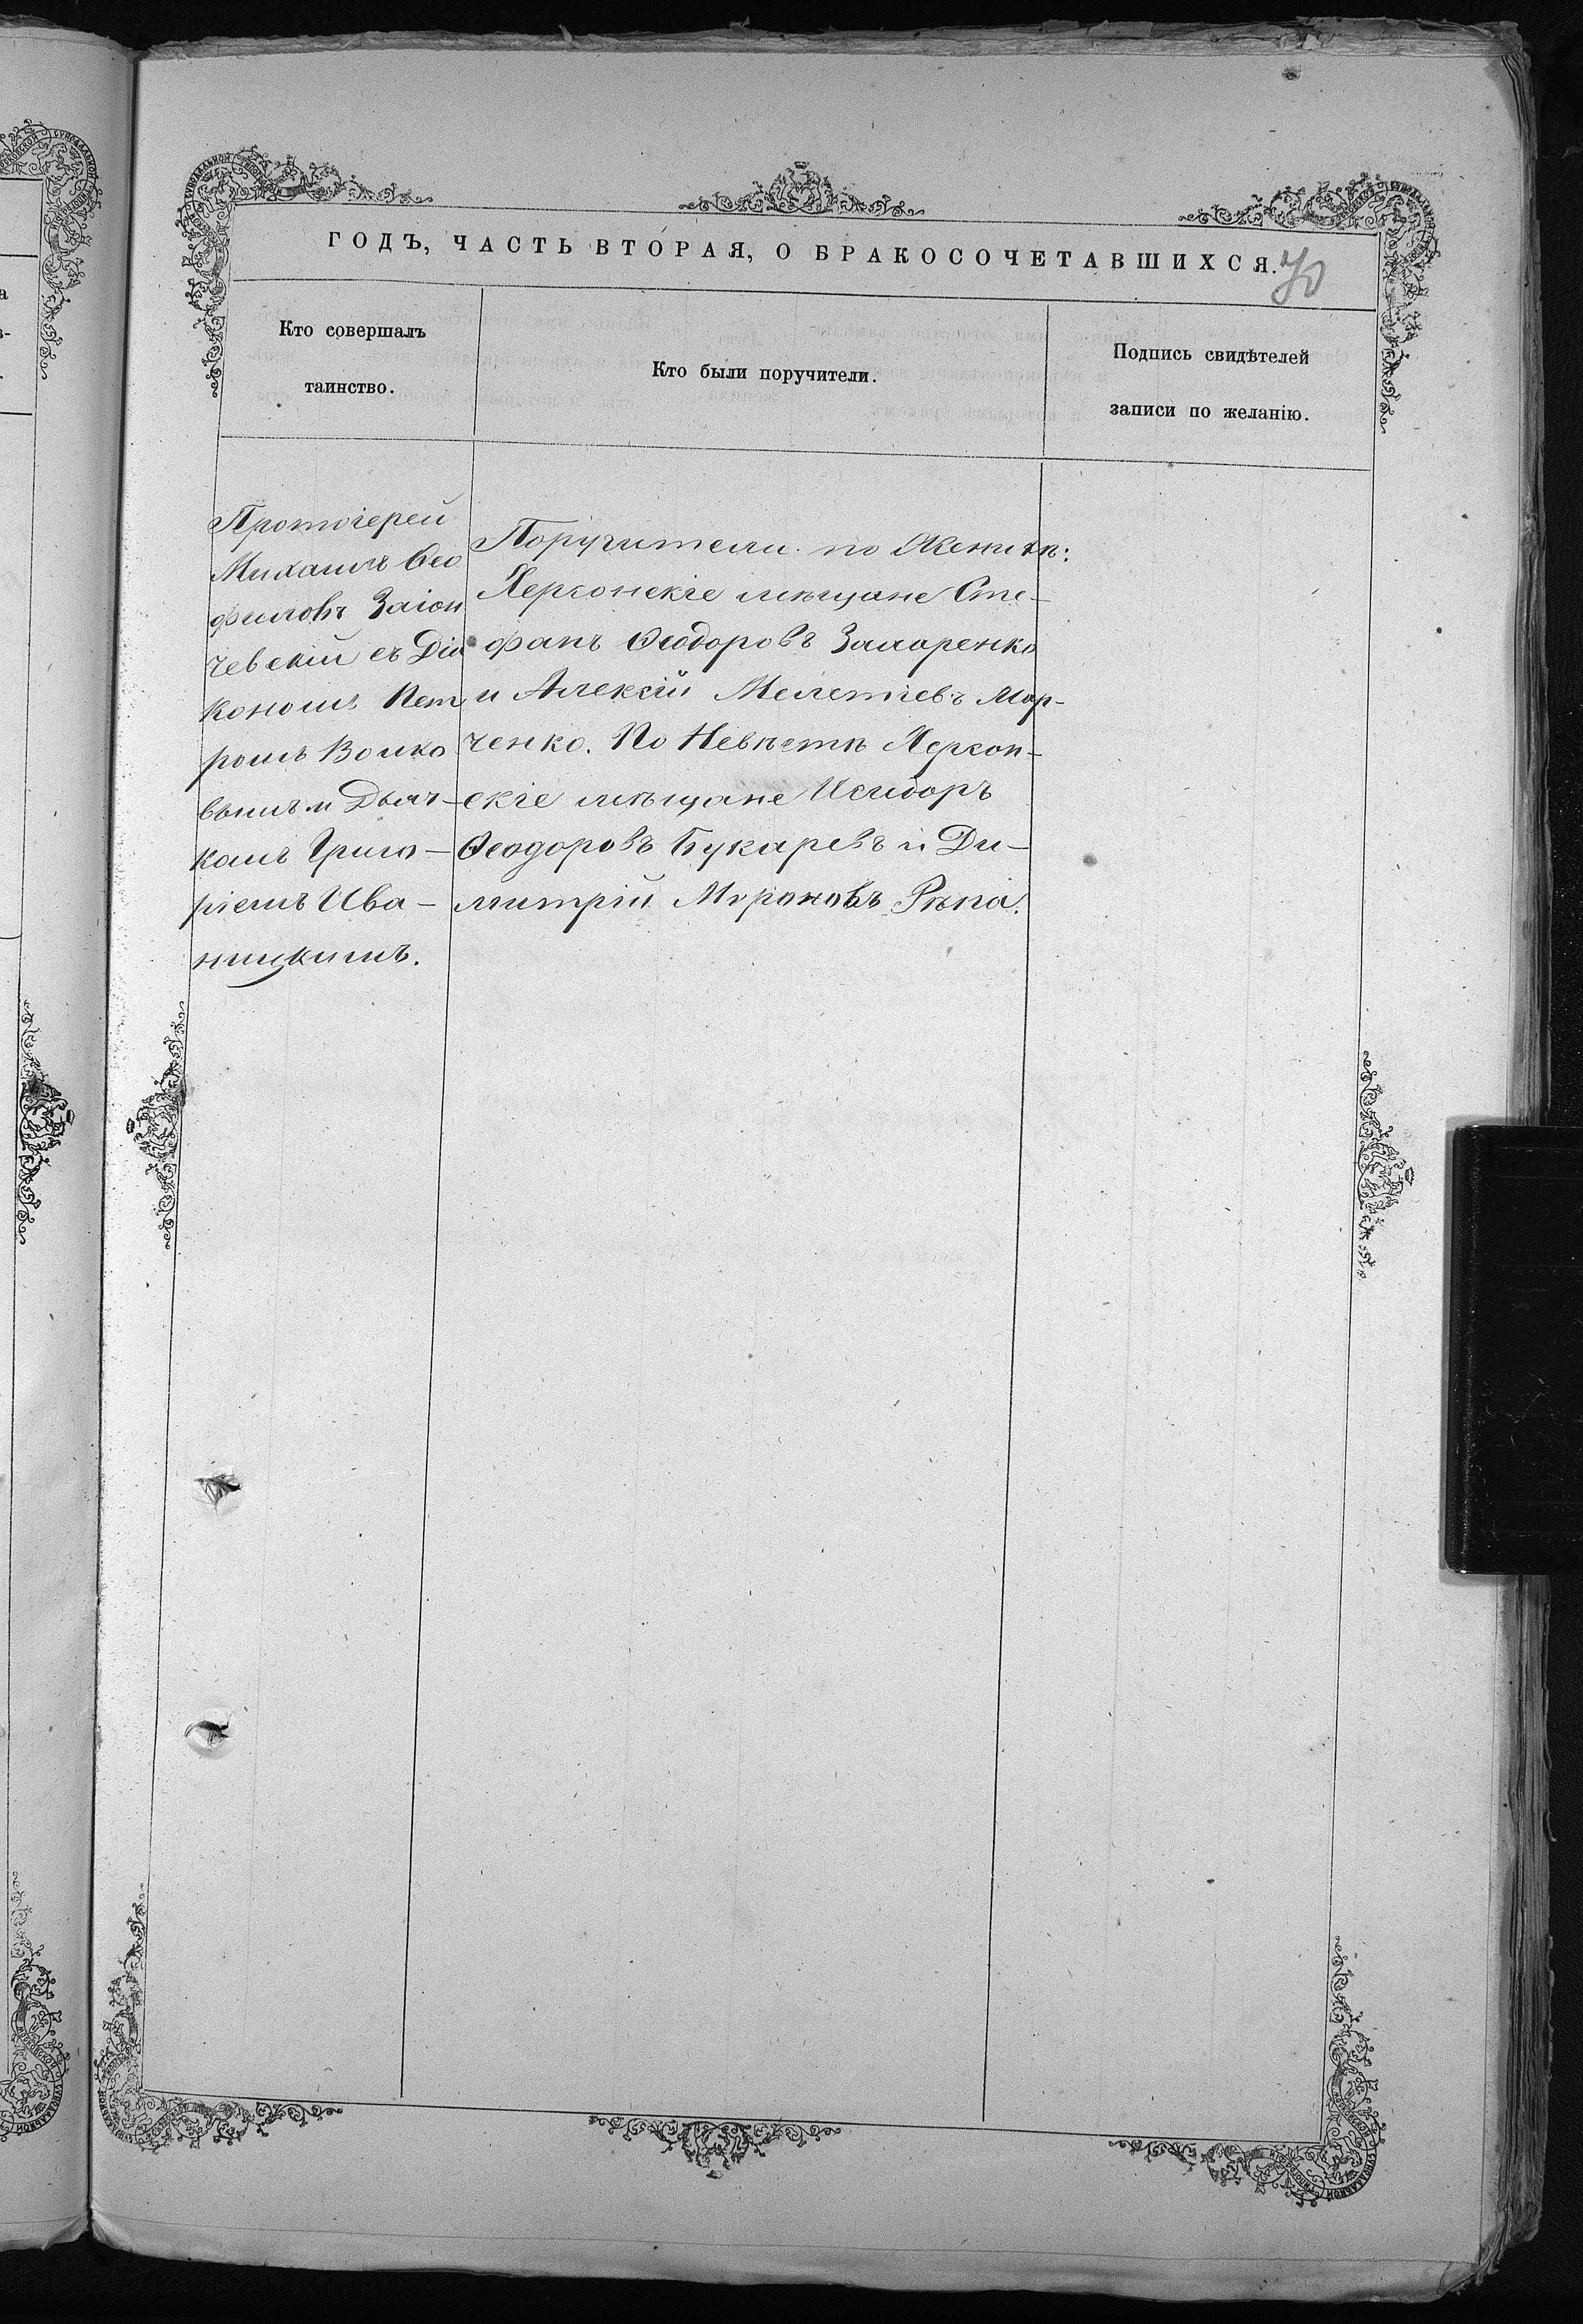 ГОДЪ, ЧАСТЬ ВТОРАЯ, О БРАКОСОЧЕТАВШИХСЯ.
70
Кто совершалъ
таинство.
Кто были поручители.
Подпись свидѣтелей
записи по желанію.
Протоіерей
Михаилъ Ѳео
филовъ Заіон
чевскій съ Діа
кономъ Пет
ромъ Волко
вымъ и Дьяч-
комъ Григо-
ріемъ Ива-
ницкимъ.
Поручители по Женихѣ:
Херсонскіе мѣщане Сте-
фанъ Ѳеодоровъ Захаренко
и Алексій Мелетіевъ Мар-
ченко. По Невѣстѣ Херсон-
скіе мѣщане Исидоръ
Ѳеодоровъ Букаревъ и Ди-
митрій Мѵроновъ Рѣпа.